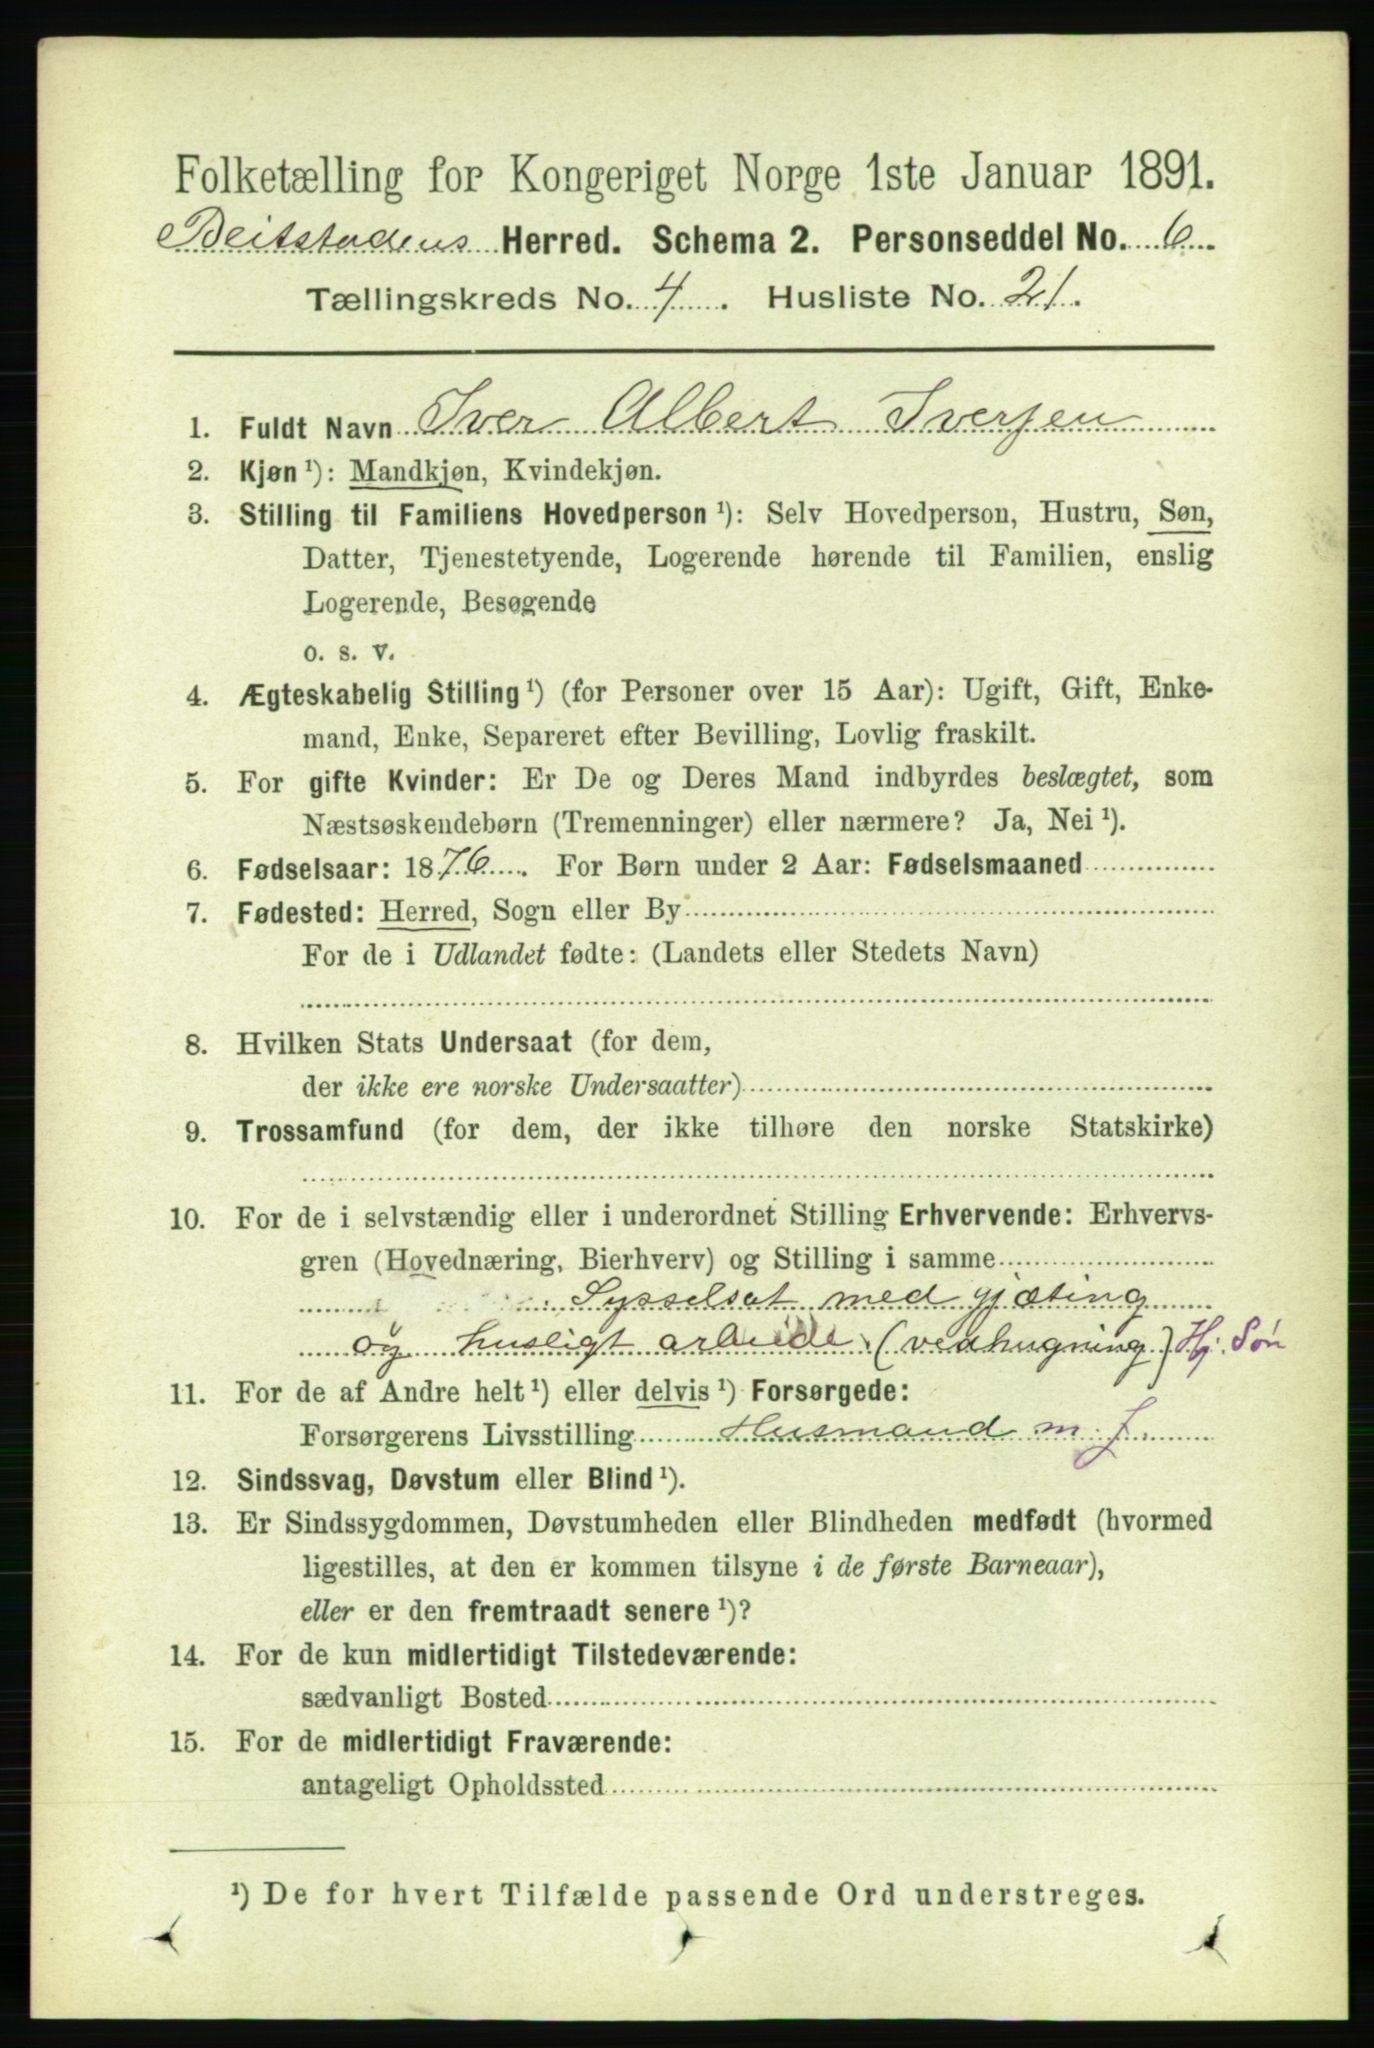 Folketælling for Kongeriget Norge 1ste Januar 1891.
Beitstadens Herred. Schema 2. Personseddel No. 6
Tællingskreds No. 4. Husliste No. 21.
1. Fuldt Navn Iver Albert Iversen
2. Kjøn ¹): Mandkjøn, Kvindekjøn.
3. Stilling til Familiens Hovedperson ¹): Selv Hovedperson, Hustru, Søn,
Datter, Tjenestetyende, Logerende hørende til Familien, enslig
Logerende, Besøgende
o. s. v.
4. Ægteskabelig Stilling ¹) (for Personer over 15 Aar): Ugift, Gift, Enke-
mand, Enke, Separeret efter Bevilling, Lovlig fraskilt.
5. For gifte Kvinder: Er De og Deres Mand indbyrdes beslægtet, som
Næstsøskendebørn (Tremenninger) eller nærmere? Ja, Nei ¹).
6. Fødselsaar: 1876. For Børn under 2 Aar: Fødselsmaaned
7. Fødested: Herred, Sogn eller By
For de i Udlandet fødte: (Landets eller Stedets Navn)
8. Hvilken Stats Undersaat (for dem,
der ikke ere norske Undersaatter)
9. Trossamfund (for dem, der ikke tilhøre den norske Statskirke)
10. For de i selvstændig eller i underordnet Stilling Erhvervende: Erhvervs-
gren (Hovednæring, Bierhverv) og Stilling i samme
Sysselsat med gjæting
og husligt arbeide (vedhugning) Hj. Søn
11. For de af Andre helt ¹) eller delvis ¹) Forsørgede:
Forsørgerens Livsstilling Husmand m. J.
12. Sindssvag, Døvstum eller Blind ¹).
13. Er Sindssygdommen, Døvstumheden eller Blindheden medfødt (hvormed
ligestilles, at den er kommen tilsyne i de første Barneaar),
eller er den fremtraadt senere ¹)?
14. For de kun midlertidigt Tilstedeværende:
sædvanligt Bosted
15. For de midlertidigt Fraværende:
antageligt Opholdssted
¹) De for hvert Tilfælde passende Ord understreges.